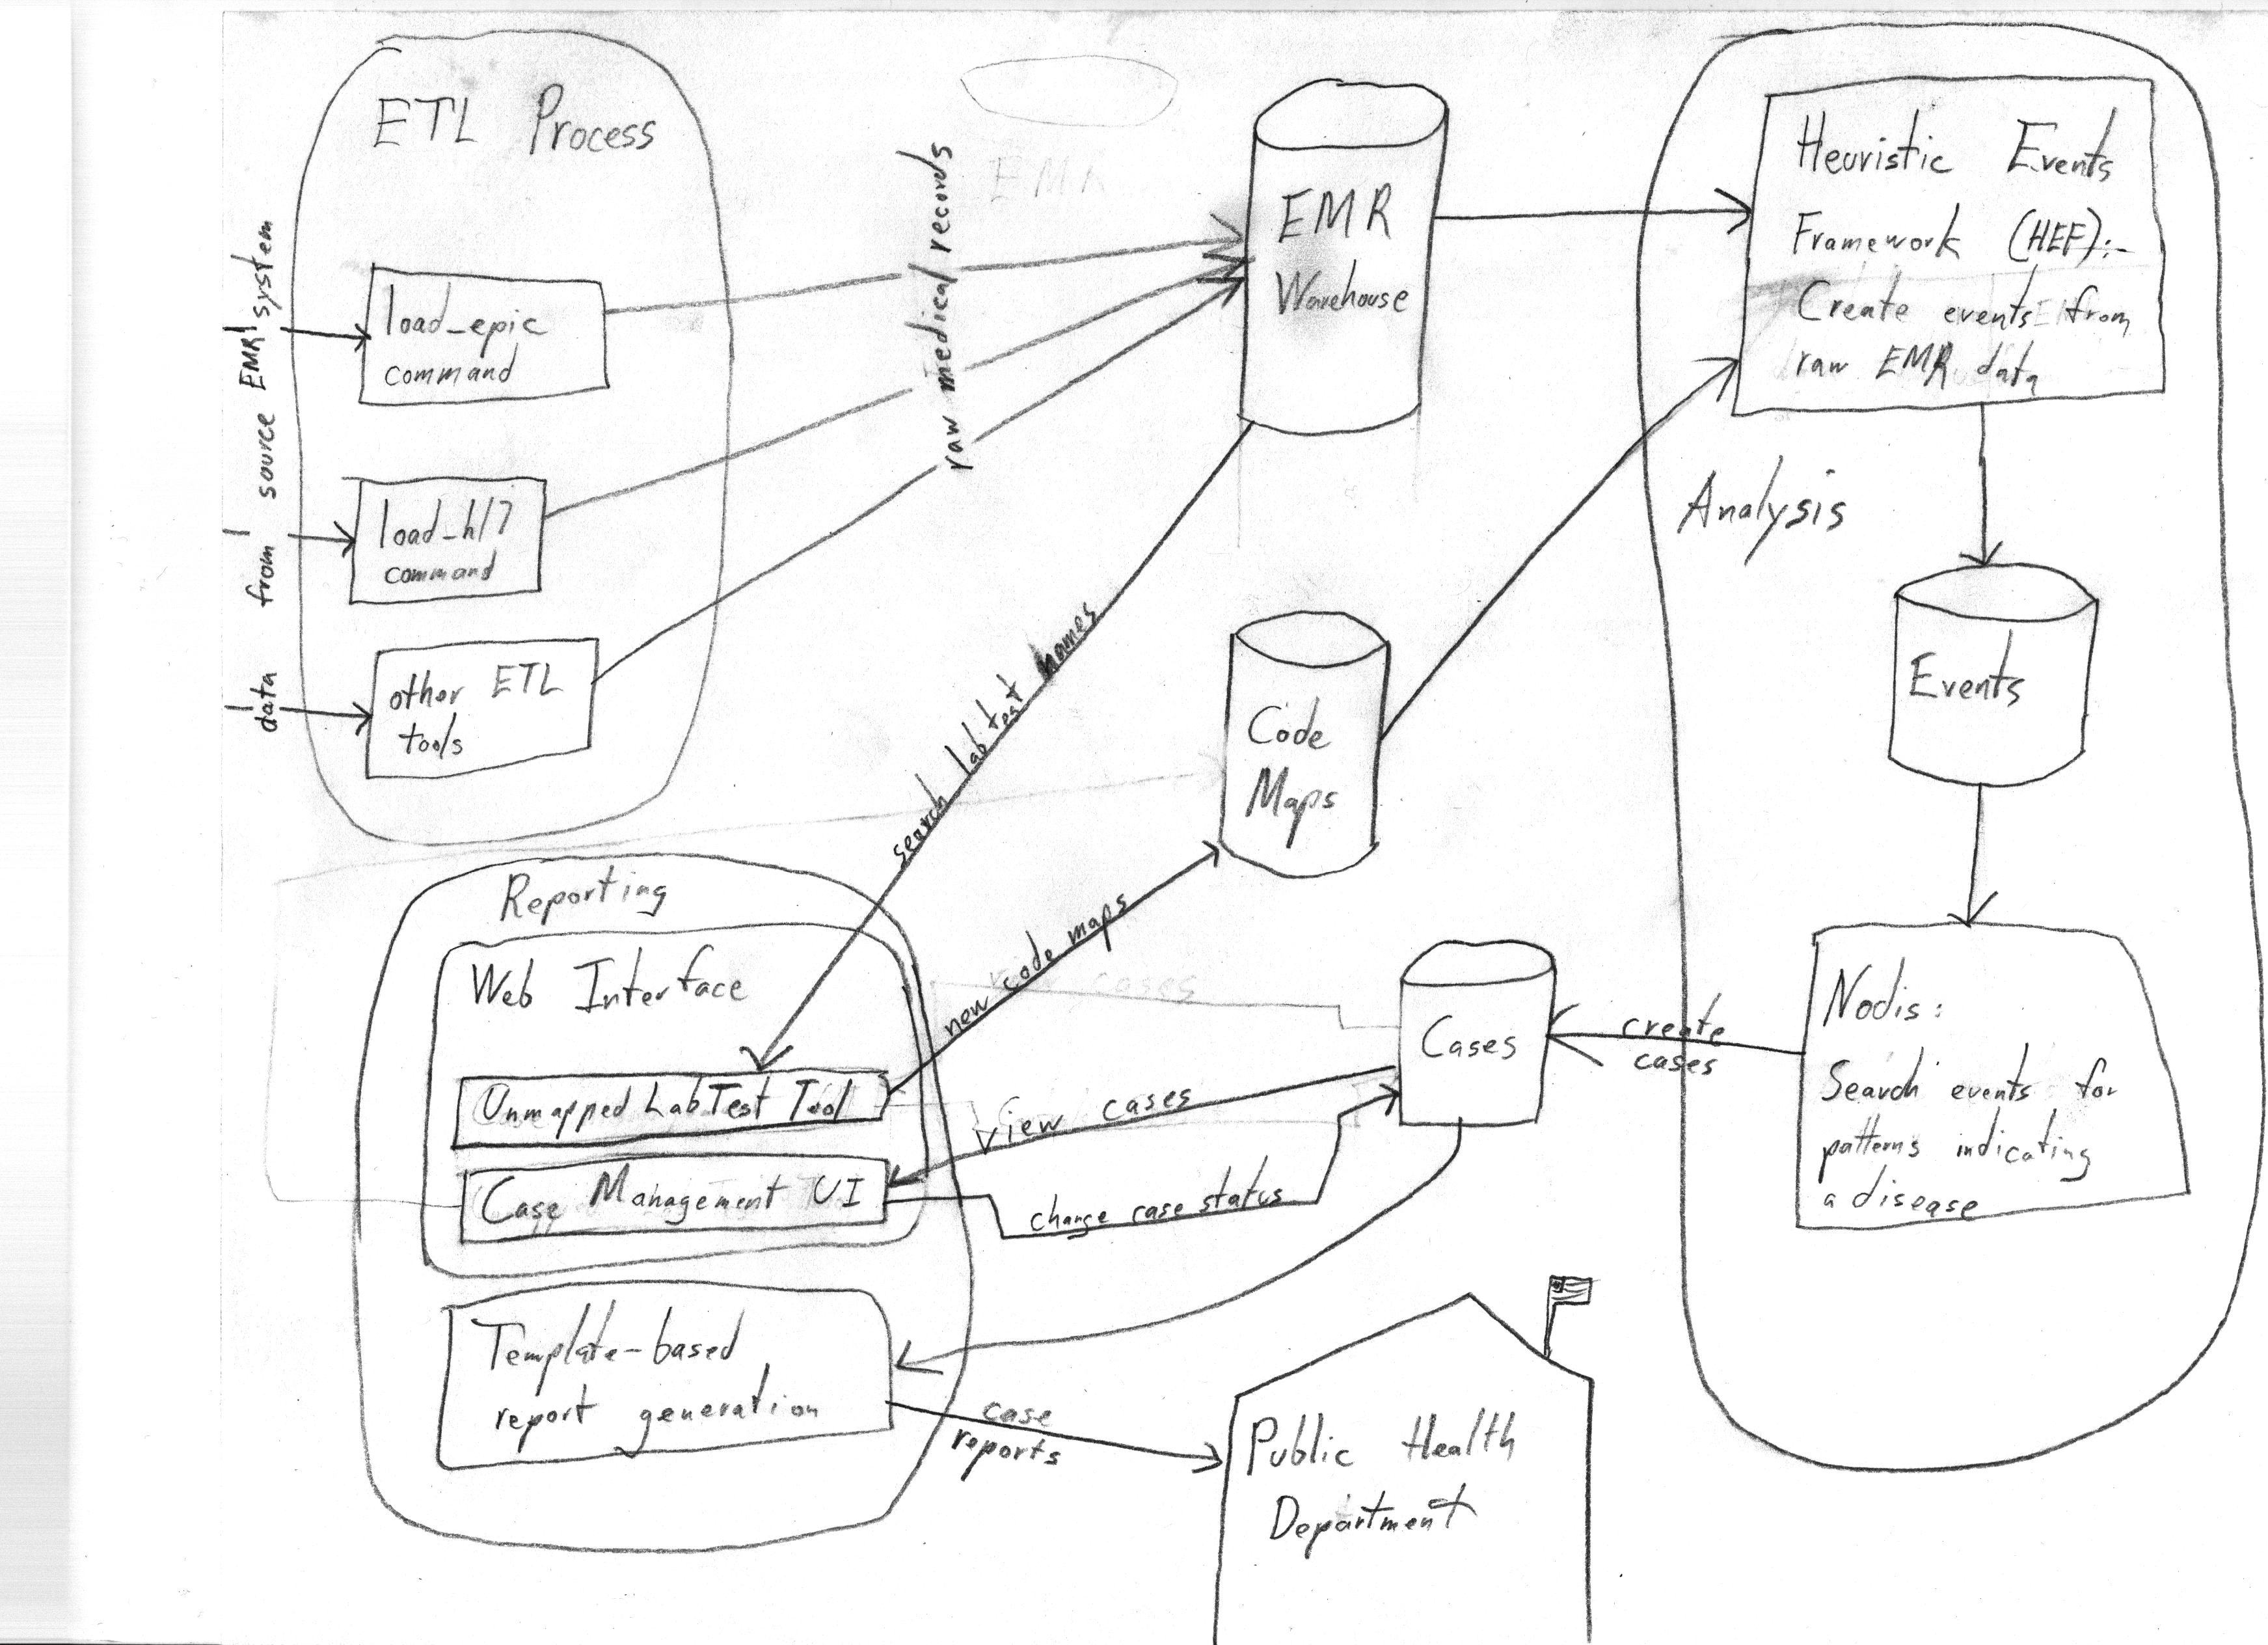 ETL Process
data from source EMR system
load_epic
command
load_hl7
command
other ETL
tools
raw medical records
EMR
EMR
Warehouse
Heuristic Events
Framework (HEF):
Create events from
raw EMR data
Analysis
Events
Code
Maps
search lab test names
new code maps
Reporting
Web Interface
Unmapped Lab Test Tool
Case Management UI
view cases
View cases
change case status
Cases
create
cases
Nodis:
Search events for
patterns indicating
a disease
Template-based
report generation
case
reports
Public Health
Department